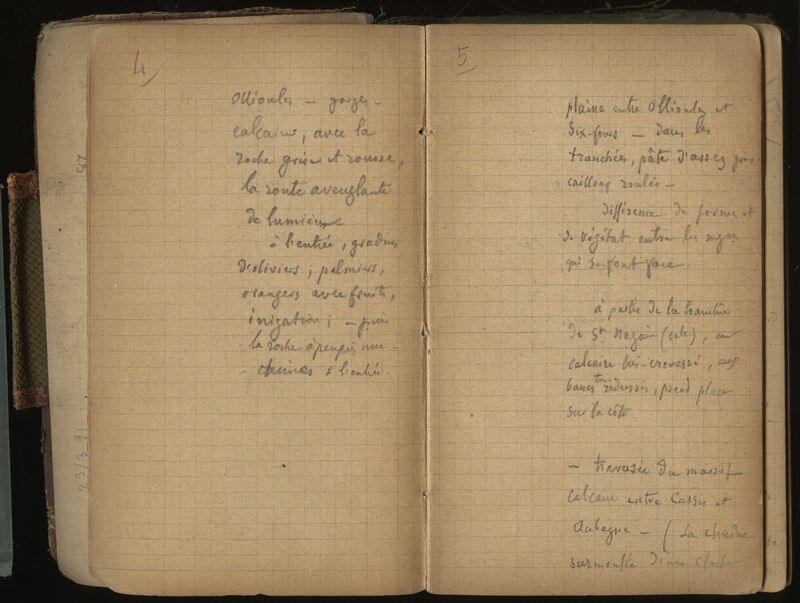 4
Ollioules – gorges –
calcaire, avec la
roche grise et rousse,
la route aveuglante
de lumière
à l'entrée, gradins
d'oliviers, palmiers,
orangers avec fruits,
irrigation; – puis
la roche à peu près nue –
chênes à l'entrée.
5
plaine entre Ollioules et
Six-fours – dans les
tranchées, pâte d'assez gros
cailloux roulés –
différence de formes et
de végétat entre les
qui se font face
à partir de la tranchée
de St Nazaire (), un
calcaire très-crevassé, aux
bancs très redressés, prend place
sur la côte
– traversée du massif
calcaire entre Cassis et
Aubagne – (La chaîne
surmontée d'une
23/3 91